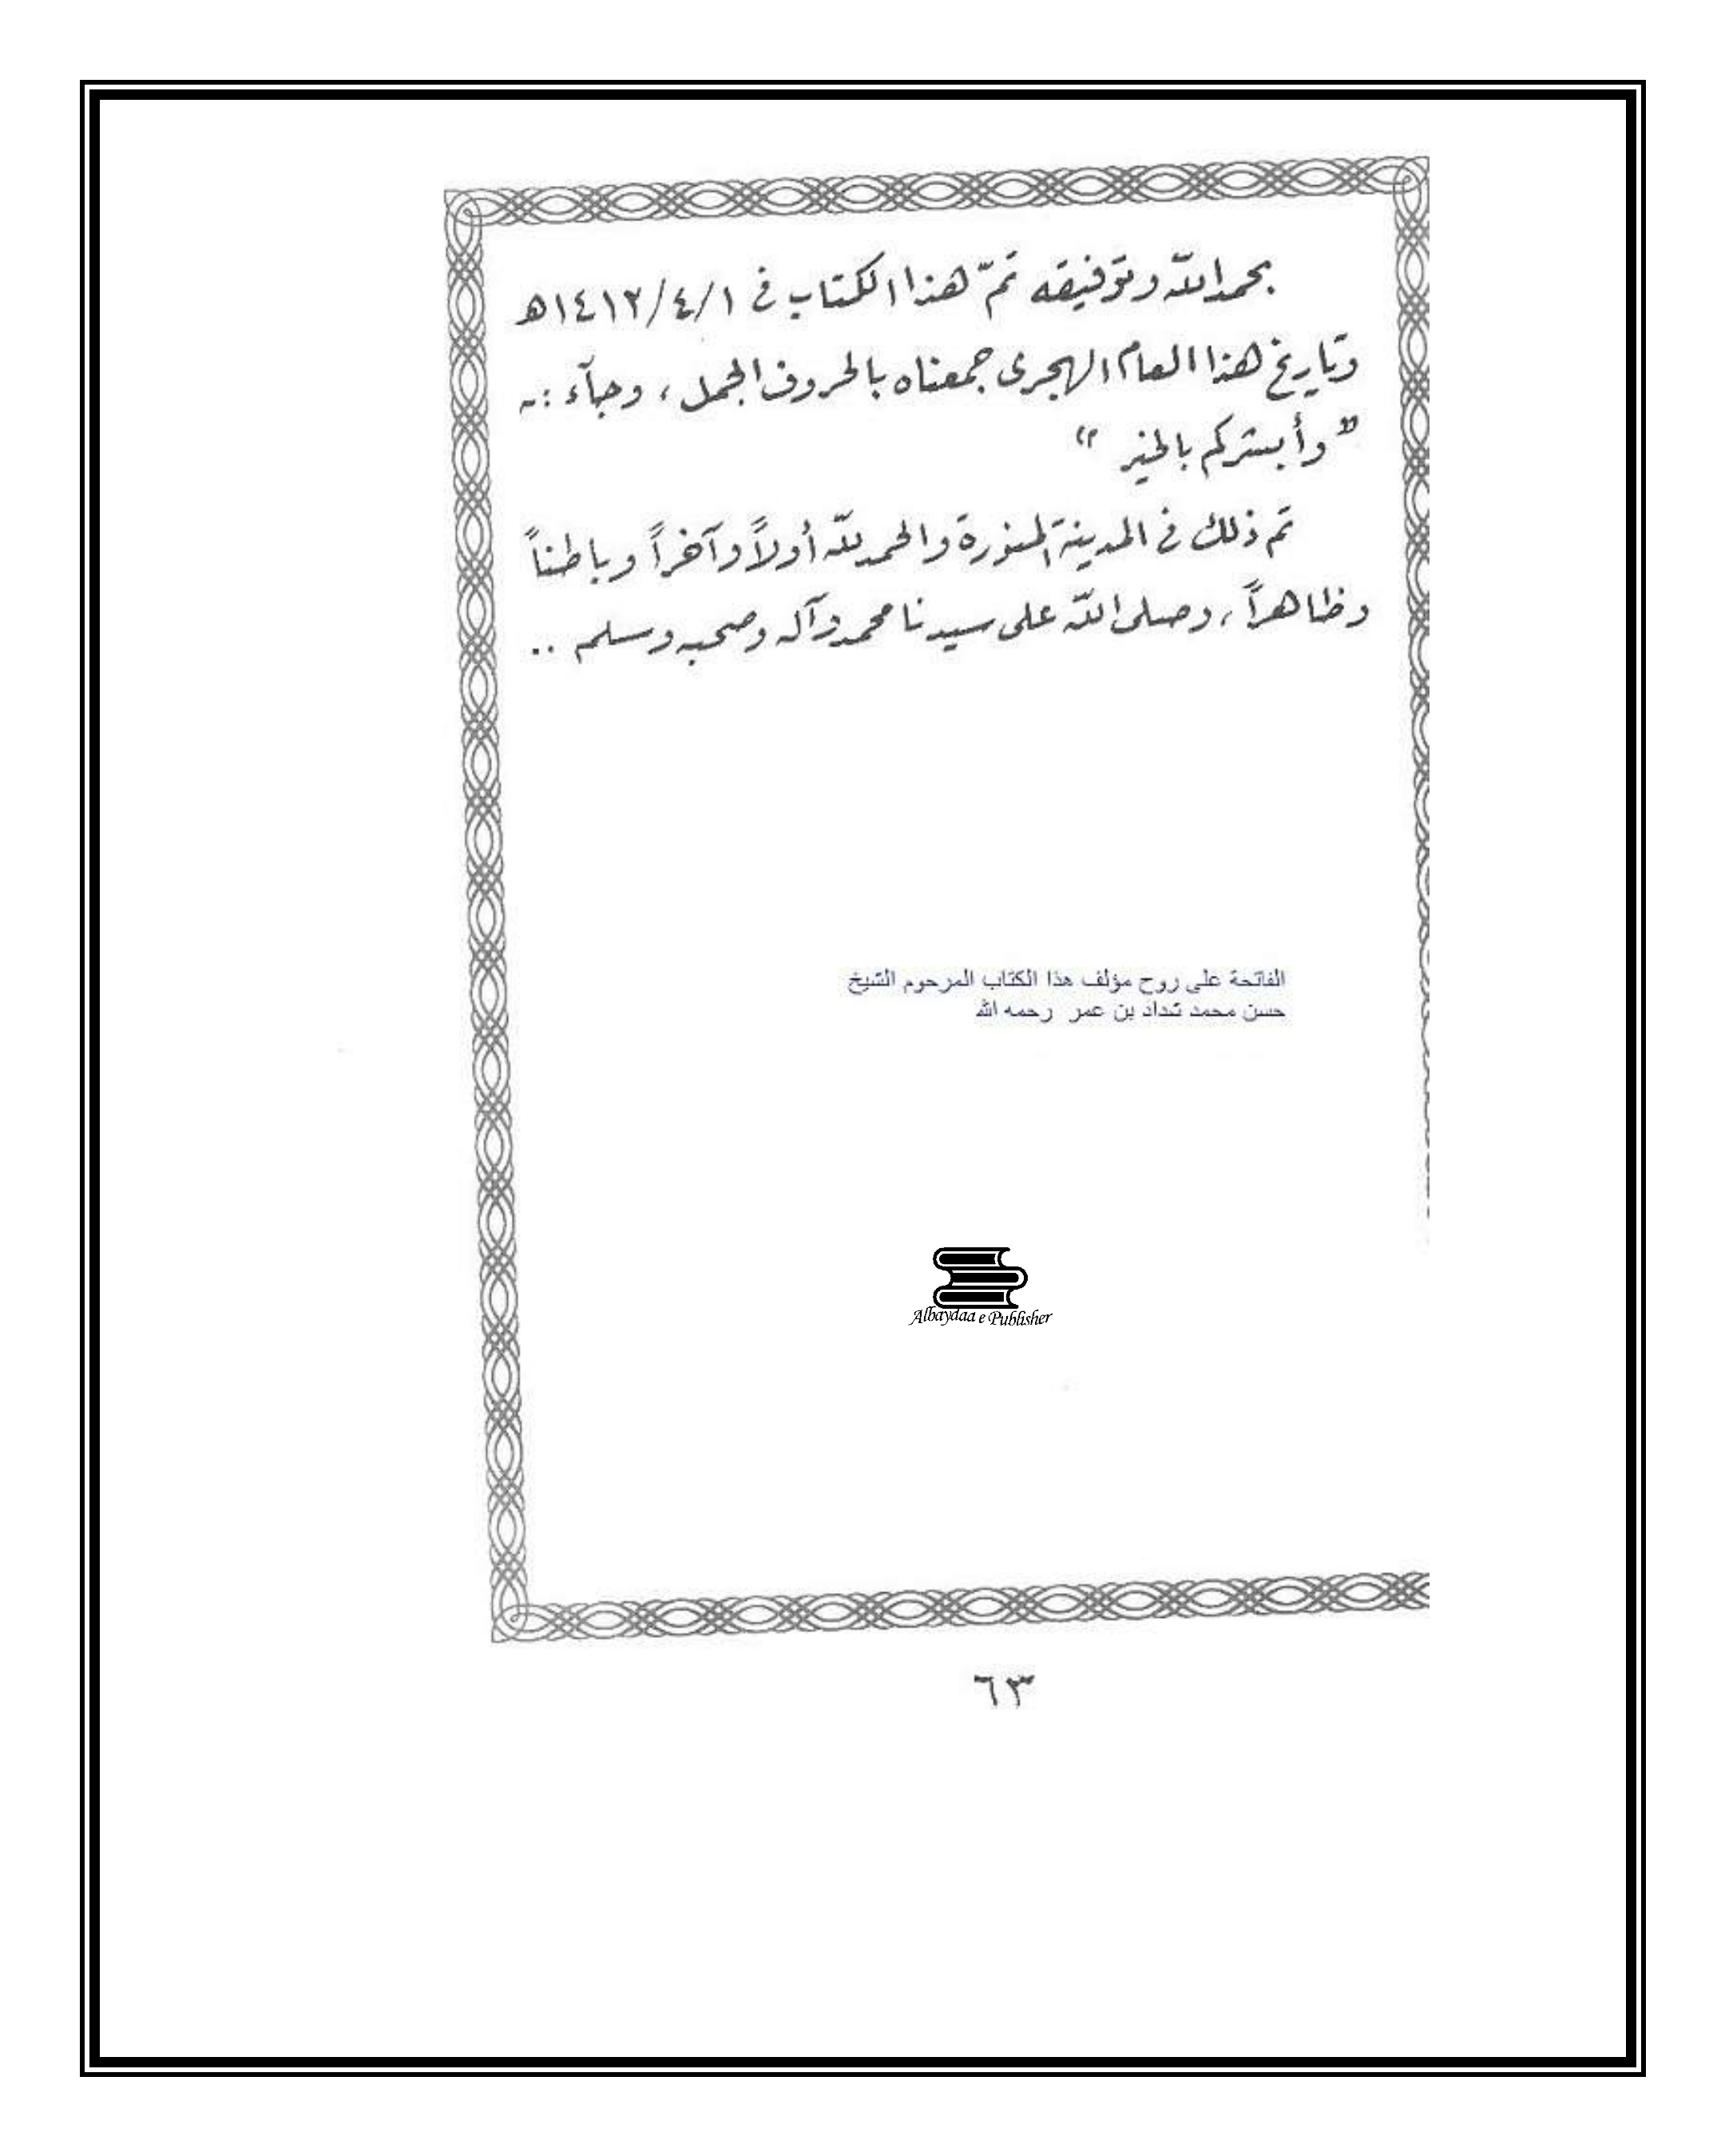 بحمد الله وتوفيقه تمّ هذا الكتاب في ١٤١٢/٤/١هـ
وتاريخ هذا العام الهجرى جمعناه بالحروف الجمل ، وجآء :-
"وأبشركم بالخير"
تم ذلك في المدينة المنورة والحمد للّه أولاً وآخراً وباطناً
وظاهراً ، وصلى اللّه على سيدنا محمد وآله وصحبه وسلم ..
الفاتحة على روح مؤلف هذا الكتاب المرحوم الشيخ
حسن محمد شداد بن عمر رحمه الله
Albaydaa e Publisher
٦٣